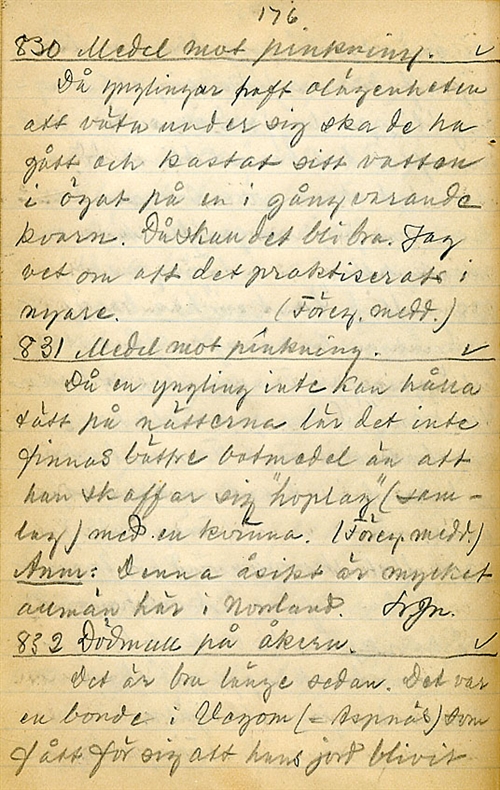 176
830 Medel mot pinkning. v
Då ynglingar haft olägenheten
att väta under sig ska de ha
gått och kastat sitt vatten
i ögat på en i gång varande
kvarn. Då skan det bli bra. Jag
vet om att det praktiserats i
nyare. (Föreg. medd.)
831 Medel mot pinkning. v
Då en yngling inte kan hålla
tätt på nätterna lär det inte
finnas bättre botmedel än att
han skaffar sig "hoplag" (sam-
lag) med en kvinna. (Föreg. medd.)
Anm: Denna åsikt är mycket
allmän här i Norrland.
832 Dödmull på åkern. v
Det är bra länge sedan. Det var
en bonde i (= Aspnäs) som
fått för sig att hans jord blivit